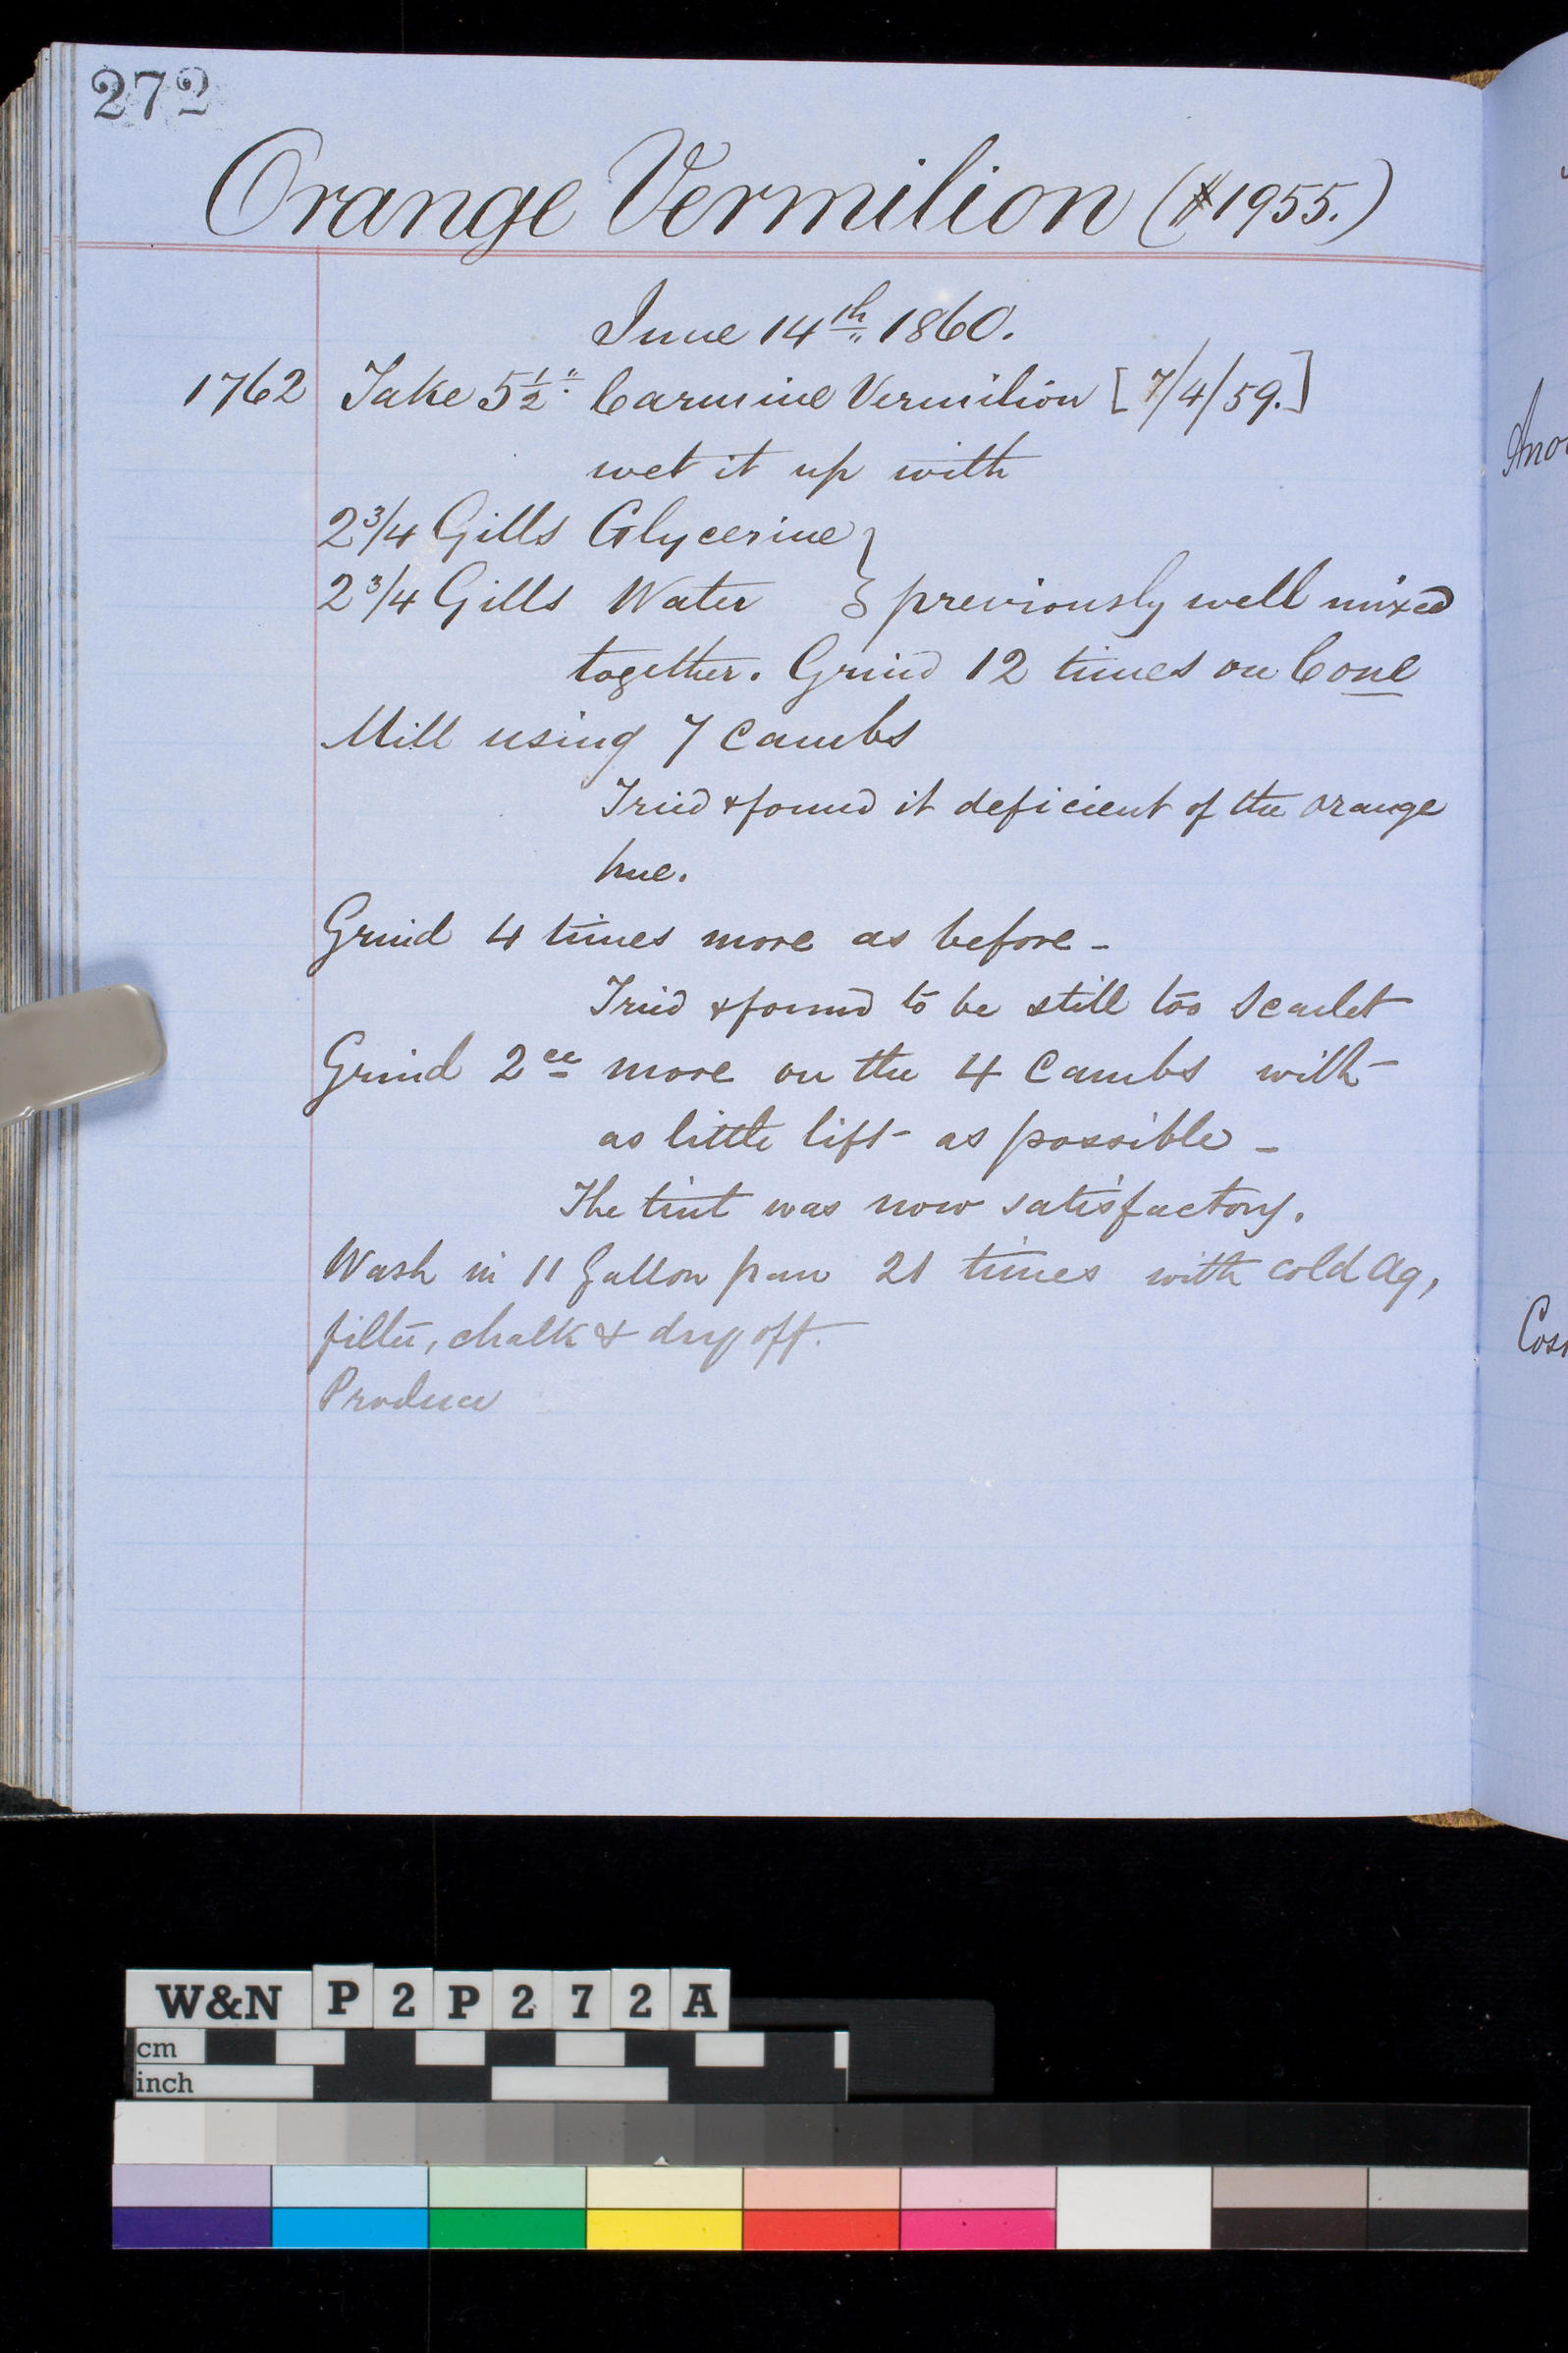 272
Orange Vermilion (#1955.)
June 14th 1860.
1762 Take 5½" Carmine Vermilion [7/4/59.]
wet it up with
2 3/4 Gills Glycerine }
2 3/4 Gills Water } previously well mixed
together. Grind 12 times on Cone
Mill using 7 Cambs
Tried & found it deficient of the orange
hue.
Grind 4 times more as before -
Tried & found to be still too Scarlet
Grind 2ce more on the 4 Cambs with
as little lift as possible -
The tint was now satisfactory.
Wash in 11 Gallon pan 21 times with cold aq,
filter, chalk & dry off.
Produce
Ano
Cos
W&N P2P272A
cm
inch